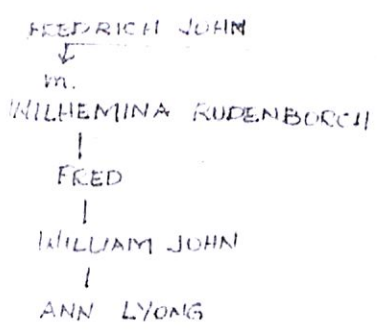 FREDRICH JOHN
m.
WILHEMINA RUDENBURCH
FRED
WILLIAM JOHN
ANN LYONG